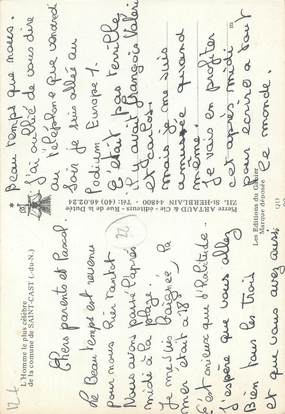 L'Homme le plus célèbre
de la commune de SAINT-CAST (C.-du-N.)
12-7
Chers parents et Pascal
Le Beau temps est revenu
pour nous hier tantôt
Nous avons passé l'après
midi à la plage.
Je me suis baignée, la
mer était à 18°.
C'est mieux que d'habitude.
J'espère que vous allez
Bien tous les trois
et que vous avez aussi
Beau temps que nous.
J'ai oublié de vous dire
au téléphone que vendredi
Soir je suis allée au
Podium Europe 1.
C'était pas terrible
il y avait François Valéry
et Carlos.
mais je me suis
amusée quand
même.
Je vais en profiter
cet après midi
pour écrire à tout
le monde.
Pierre ARTAUD & Cie éditeurs - Rue de la Dutée
ZIL-St-HERBLAIN 44800 - Tél: (40) 46.02.24
Les Editions du Gabier
Marque déposée
22